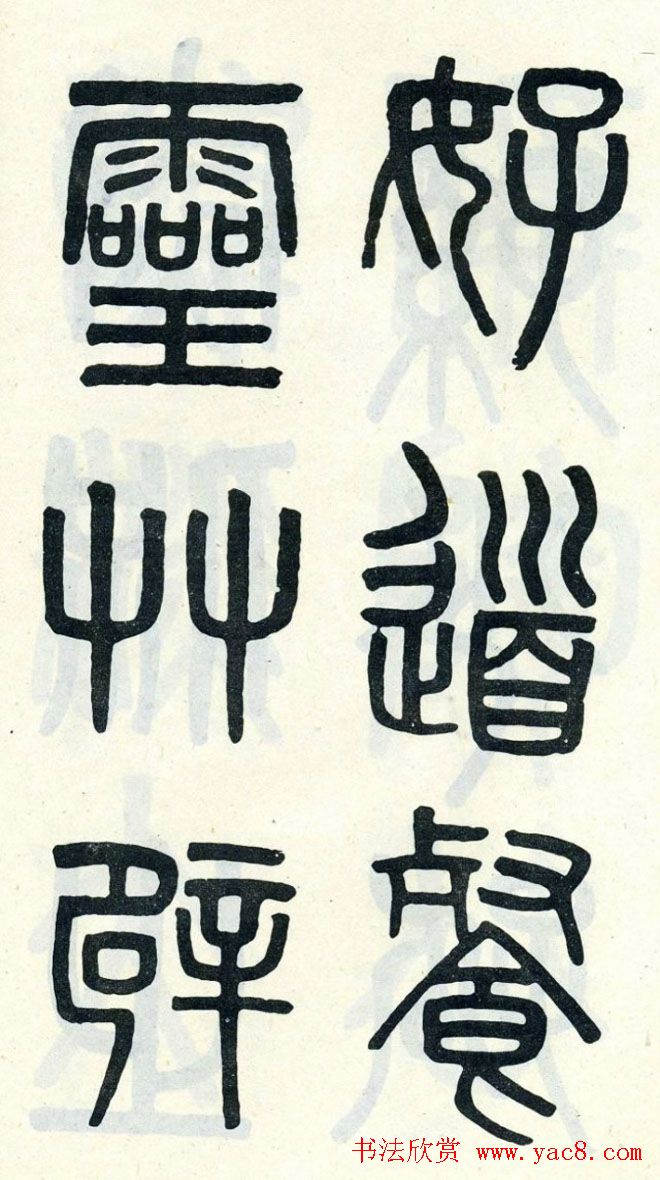 好道餐
靈艸辟
书法欣赏 www.yac8.com